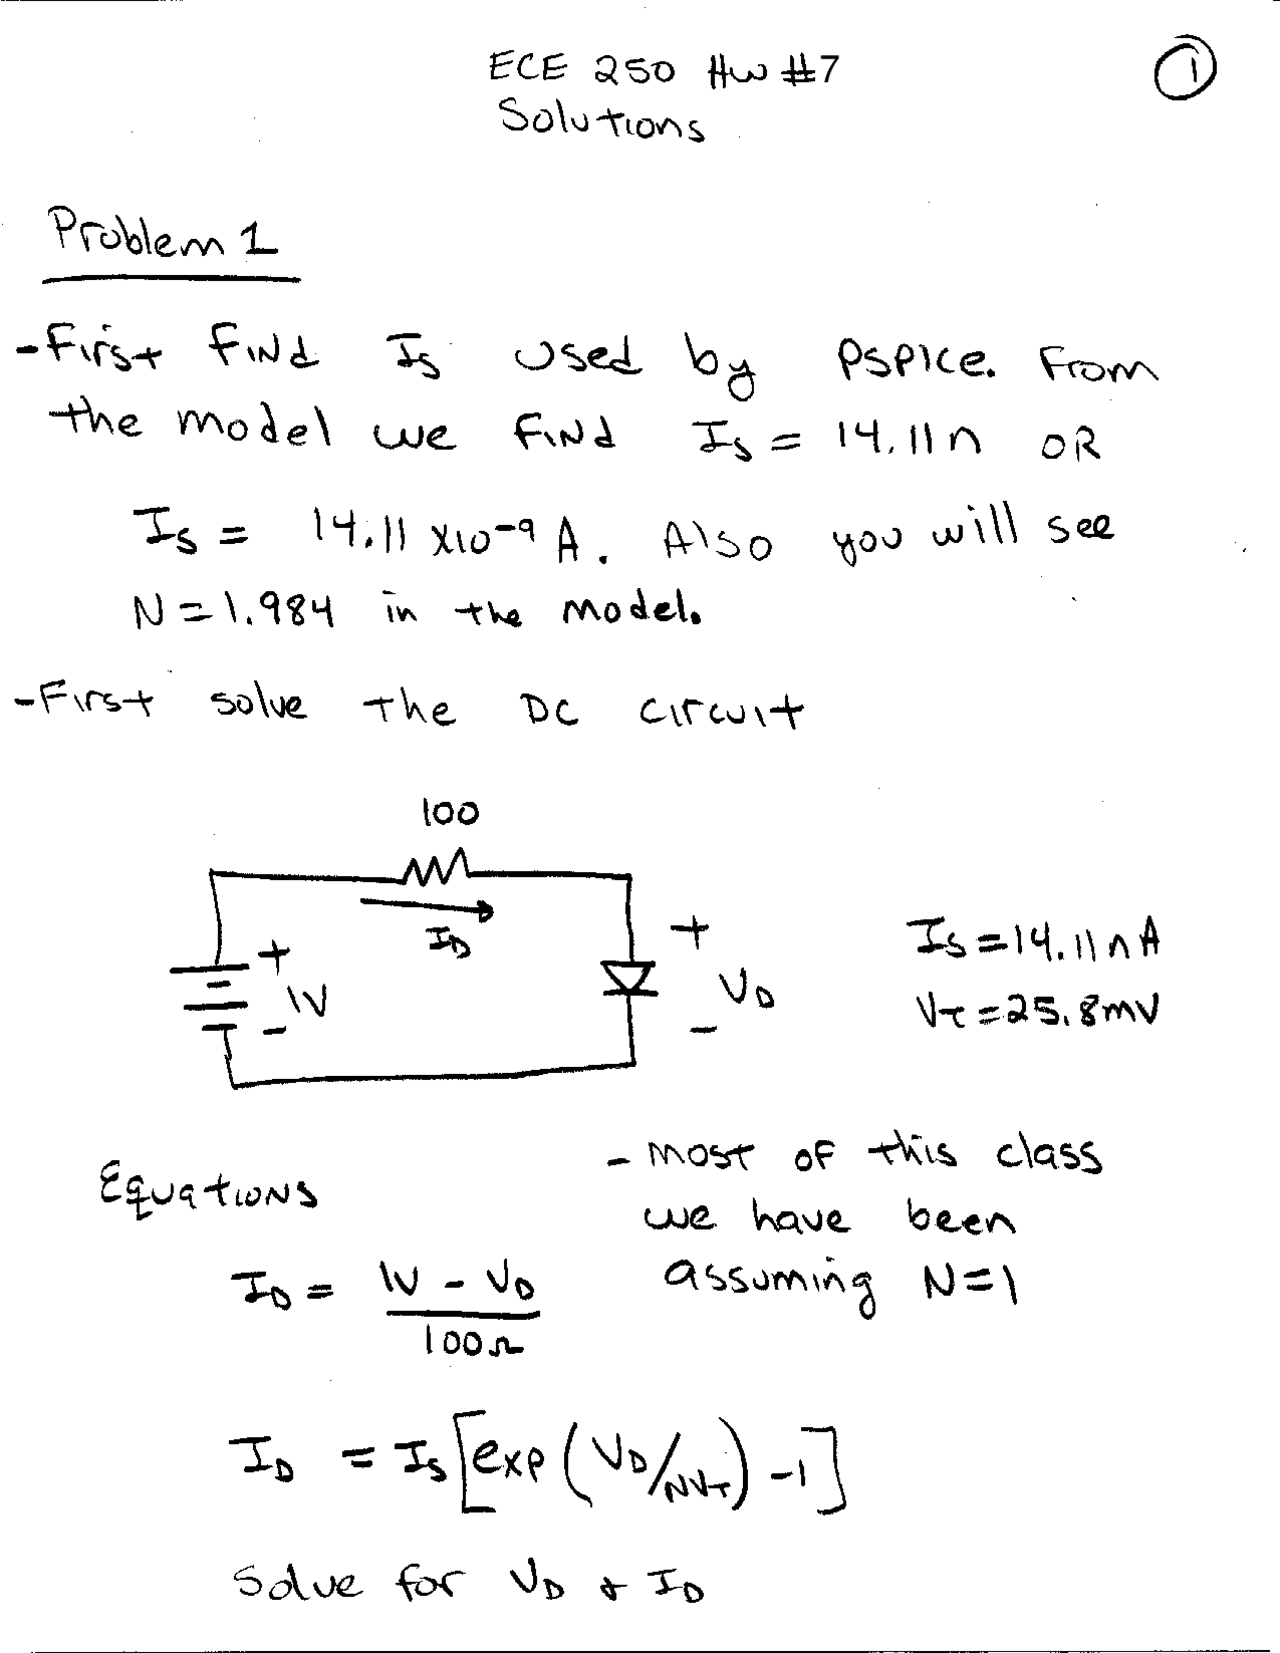 ECE 250 HW #7
Solutions
1
Problem 1
- First find Is used by PSPICE. From
the model we find Is = 14.11n OR
Is = 14.11 x10⁻⁹ A. Also you will see
N = 1.984 in the model.
- First solve the DC circuit
100
ID
+
1V
-
+
VD
-
Is = 14.11nA
VT = 25.8mV
Equations
- most of this class
we have been
assuming N=1
ID = 1V - VD
100Ω
ID = Is [exp (VD/NVT) -1]
Solve for VD & ID